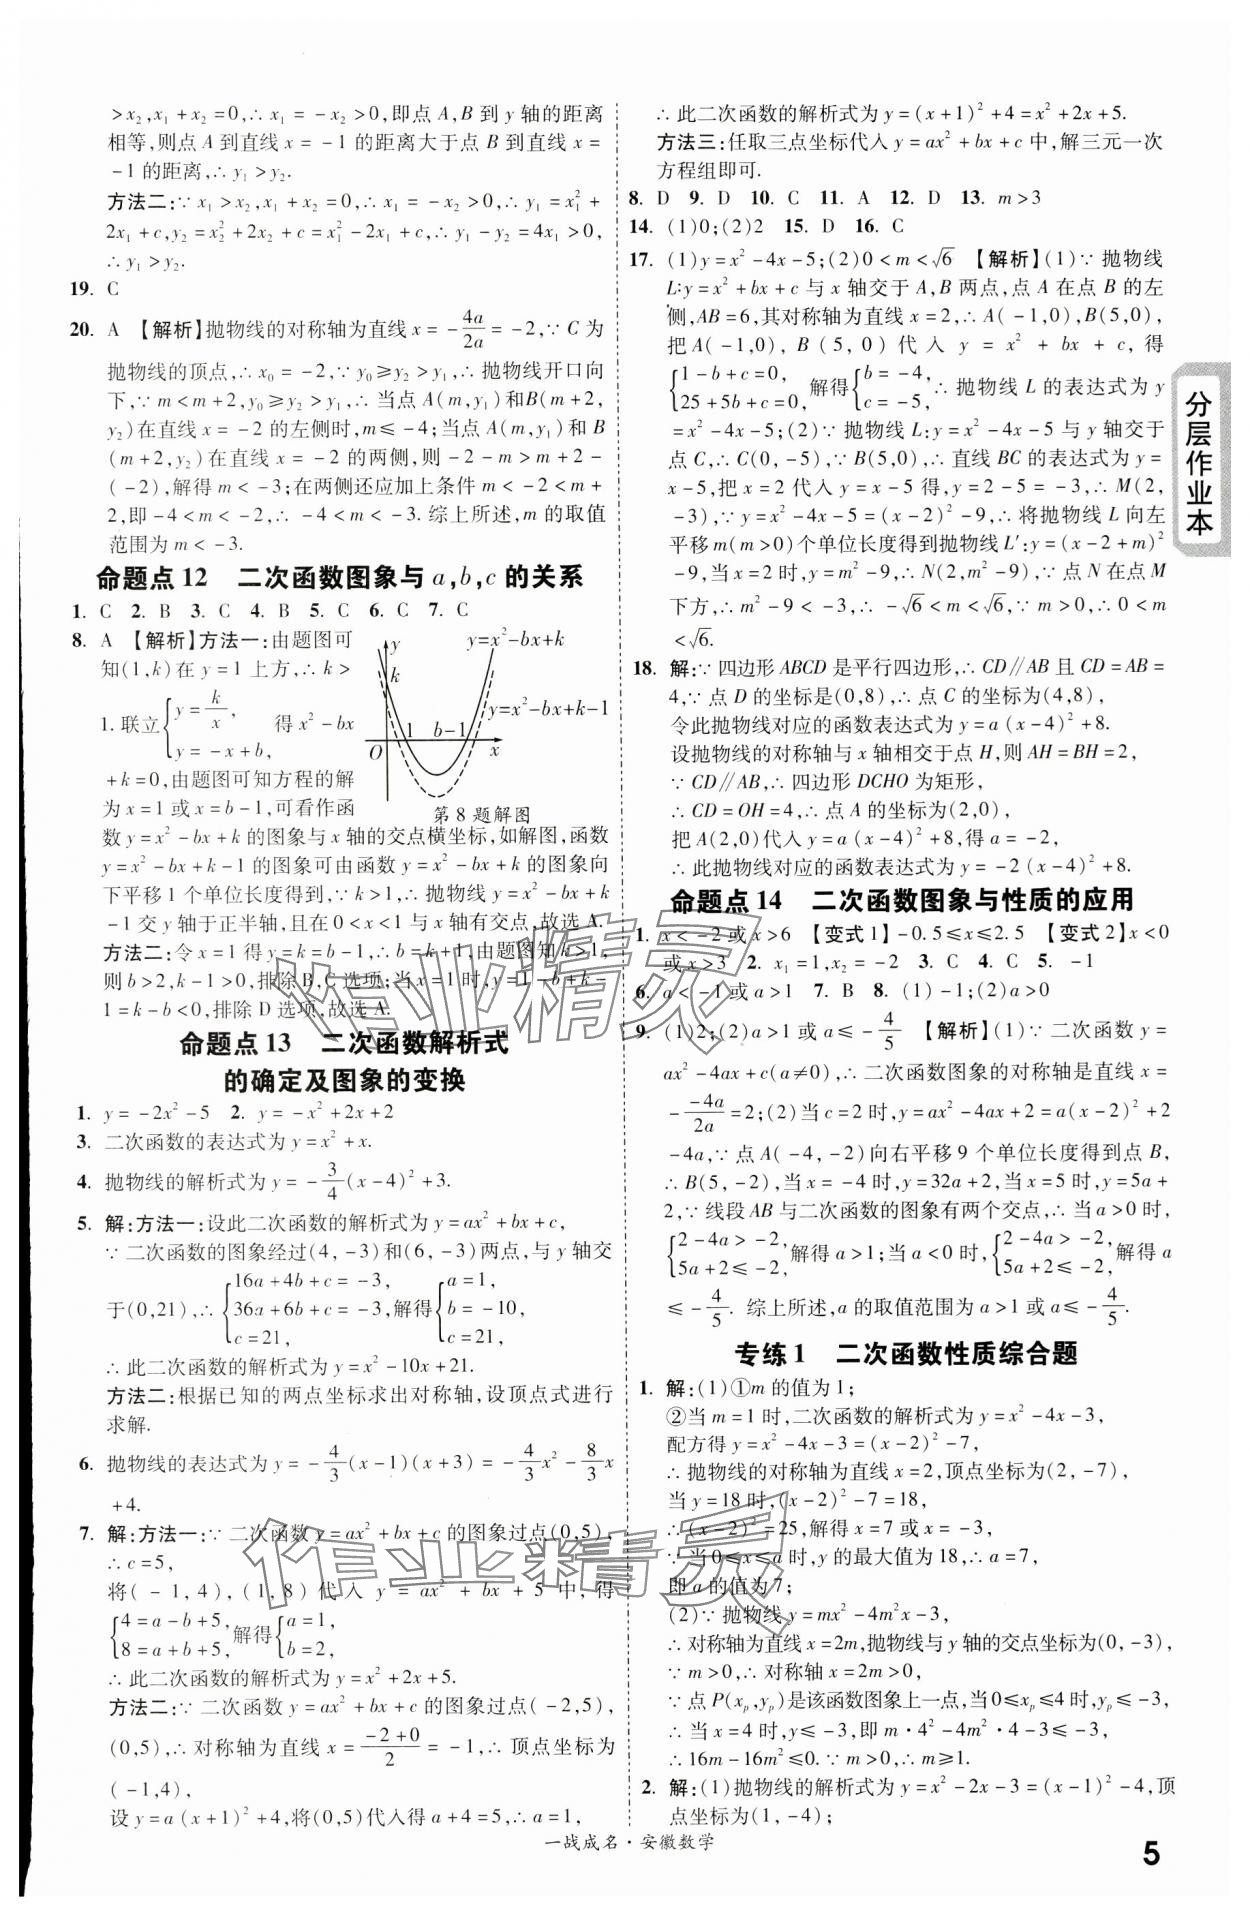 >x₂,x₁+x₂=0,∴x₁=-x₂>0,即点A,B到y轴的距离
相等,则点A到直线x=-1的距离大于点B到直线x=
-1的距离,∴y₁>y₂.
方法二:∵x₁>x₂,x₁+x₂=0,∴x₁=-x₂>0,∴y₁=x₁²+
2x₁+c,y₂=x₂²+2x₂+c=x₁²-2x₁+c,∴y₁-y₂=4x₁>0,
∴y₁>y₂.
19. C
20. A 【解析】抛物线的对称轴为直线x=-4a/2a=-2,∵C为
抛物线的顶点,∴x₀=-2,∵y₀≥y₂>y₁,∴抛物线开口向
下,∵m<m+2,y₀≥y₂>y₁,∴当点A(m,y₁)和B(m+2,
y₂)在直线x=-2的左侧时,m≤-4;当点A(m,y₁)和B
(m+2,y₂)在直线x=-2的两侧,则-2-m>m+2-
(-2),解得m<-3;在两侧还应加上条件m<-2<m+
2,即-4<m<-2,∴-4<m<-3.综上所述,m的取值
范围为m<-3.
命题点12 二次函数图象与a,b,c的关系
1. C 2. B 3. C 4. B 5. C 6. C 7. C
8. A 【解析】方法一:由题图可
知(1,k)在y=1上方,∴k>
1.联立{y=k/x, y=-x+b, 得x²-bx
+k=0,由题图可知方程的解
为x=1或x=b-1,可看作函
y
y=x²-bx+k
k
y=x²-bx+k-1
1
b-1
O
x
第8题解图
数y=x²-bx+k的图象与x轴的交点横坐标,如解图,函数
y=x²-bx+k-1的图象可由函数y=x²-bx+k的图象向
下平移1个单位长度得到,∵k>1,∴抛物线y=x²-bx+k
-1交y轴于正半轴,且在0<x<1与x轴有交点,故选A.
方法二:令x=1得y=k=-1+b,∴b=k+1,由题图知k>1,
则b>2,k-1>0,排除B,C选项;当x=1时,y=1-b+k-
1=k-b<0,排除D选项,故选A.
命题点13 二次函数解析式
的确定及图象的变换
1. y=-2x²-5 2. y=-x²+2x+2
3. 二次函数的表达式为y=x²+x.
4. 抛物线的解析式为y=-3/4(x-4)²+3.
5. 解:方法一:设此二次函数的解析式为y=ax²+bx+c,
∵二次函数的图象经过(4,-3)和(6,-3)两点,与y轴交
于(0,21),∴{16a+4b+c=-3, 36a+6b+c=-3, c=21, 解得{a=1, b=-10, c=21,
∴此二次函数的解析式为y=x²-10x+21.
方法二:根据已知的两点坐标求出对称轴,设顶点式进行
求解.
6. 抛物线的表达式为y=-4/3(x-1)(x+3)=-4/3x²-8/3x
+4.
7. 解:方法一:∵二次函数y=ax²+bx+c的图象过点(0,5),
∴c=5,
将(-1,4),(1,8)代入y=ax²+bx+5中,得
{4=a-b+5, 8=a+b+5, 解得{a=1, b=2,
∴此二次函数的解析式为y=x²+2x+5.
方法二:∵二次函数y=ax²+bx+c的图象过点(-2,5),
(0,5),∴对称轴为直线x=(-2+0)/2=-1,∴顶点坐标为
(-1,4),
设y=a(x+1)²+4,将(0,5)代入得a+4=5,∴a=1,
∴此二次函数的解析式为y=(x+1)²+4=x²+2x+5.
方法三:任取三点坐标代入y=ax²+bx+c中,解三元一次
方程组即可.
8. D 9. D 10. C 11. A 12. D 13. m>3
14. (1)0;(2)2 15. D 16. C
17. (1)y=x²-4x-5;(2)0<m<√6 【解析】(1)∵抛物线
L:y=x²+bx+c与x轴交于A,B两点,点A在点B的左
侧,AB=6,其对称轴为直线x=2,∴A(-1,0),B(5,0),
把A(-1,0),B(5,0)代入y=x²+bx+c,得
{1-b+c=0, 25+5b+c=0, 解得{b=-4, c=-5, ∴抛物线L的表达式为y
=x²-4x-5;(2)∵抛物线L:y=x²-4x-5与y轴交于
点C,∴C(0,-5),∵B(5,0),∴直线BC的表达式为y=
x-5,把x=2代入y=x-5得,y=2-5=-3,∴M(2,
-3),∵y=x²-4x-5=(x-2)²-9,∴将抛物线L向左
平移m(m>0)个单位长度得到抛物线L′:y=(x-2+m)²
-9,当x=2时,y=m²-9,∴N(2,m²-9),∵点N在点M
下方,∴m²-9<-3,∴-√6<m<√6,∵m>0,∴0<m
<√6.
18. 解:∵四边形ABCD是平行四边形,∴CD∥AB且CD=AB=
4,∵点D的坐标是(0,8),∴点C的坐标为(4,8),
令此抛物线对应的函数表达式为y=a(x-4)²+8.
设抛物线的对称轴与x轴相交于点H,则AH=BH=2,
∵CD∥AB,∴四边形DCHO为矩形,
∴CD=OH=4,∴点A的坐标为(2,0),
把A(2,0)代入y=a(x-4)²+8,得a=-2,
∴此抛物线对应的函数表达式为y=-2(x-4)²+8.
命题点14 二次函数图象与性质的应用
1. x<-2或x>6 【变式1】-0.5≤x≤2.5 【变式2】x<0
或x>3 2. x₁=1,x₂=-2 3. C 4. C 5. -1
6. a<-1或a>1 7. B 8. (1)-1;(2)a>0
9. (1)2;(2)a>1或a≤-4/5 【解析】(1)∵二次函数y=
ax²-4ax+c(a≠0),∴二次函数图象的对称轴是直线x=
-(-4a)/2a=2;(2)当c=2时,y=ax²-4ax+2=a(x-2)²+2
-4a,∵点A(-4,-2)向右平移9个单位长度得到点B,
∴B(5,-2),当x=-4时,y=32a+2,当x=5时,y=5a+
2,∵线段AB与二次函数的图象有两个交点,∴当a>0时,
{2-4a>-2, 5a+2≤-2, 解得a>1;当a<0时,{2-4a>-2, 5a+2≤-2, 解得a
≤-4/5.综上所述,a的取值范围为a>1或a≤-4/5.
专练1 二次函数性质综合题
1. 解:(1)①m的值为1;
②当m=1时,二次函数的解析式为y=x²-4x-3,
配方得y=x²-4x-3=(x-2)²-7,
∴抛物线的对称轴为直线x=2,顶点坐标为(2,-7),
当y=18时,(x-2)²-7=18,
∴(x-2)²=25,解得x=7或x=-3,
∵当0≤x≤a时,y的最大值为18,∴a=7,
即a的值为7;
(2)∵抛物线y=mx²-4m²x-3,
∴对称轴为直线x=2m,抛物线与y轴的交点坐标为(0,-3),
∵m>0,∴对称轴x=2m>0,
∵点P(xₚ,yₚ)是该函数图象上一点,当0≤xₚ≤4时,yₚ≤-3,
∴当x=4时,y≤-3,即m·4²-4m²·4-3≤-3,
∴16m-16m²≤0.∵m>0,∴m≥1.
2. 解:(1)抛物线的解析式为y=x²-2x-3=(x-1)²-4,顶
点坐标为(1,-4);
分层作业本
作业精灵
作业精灵
一战成名·安徽数学
5